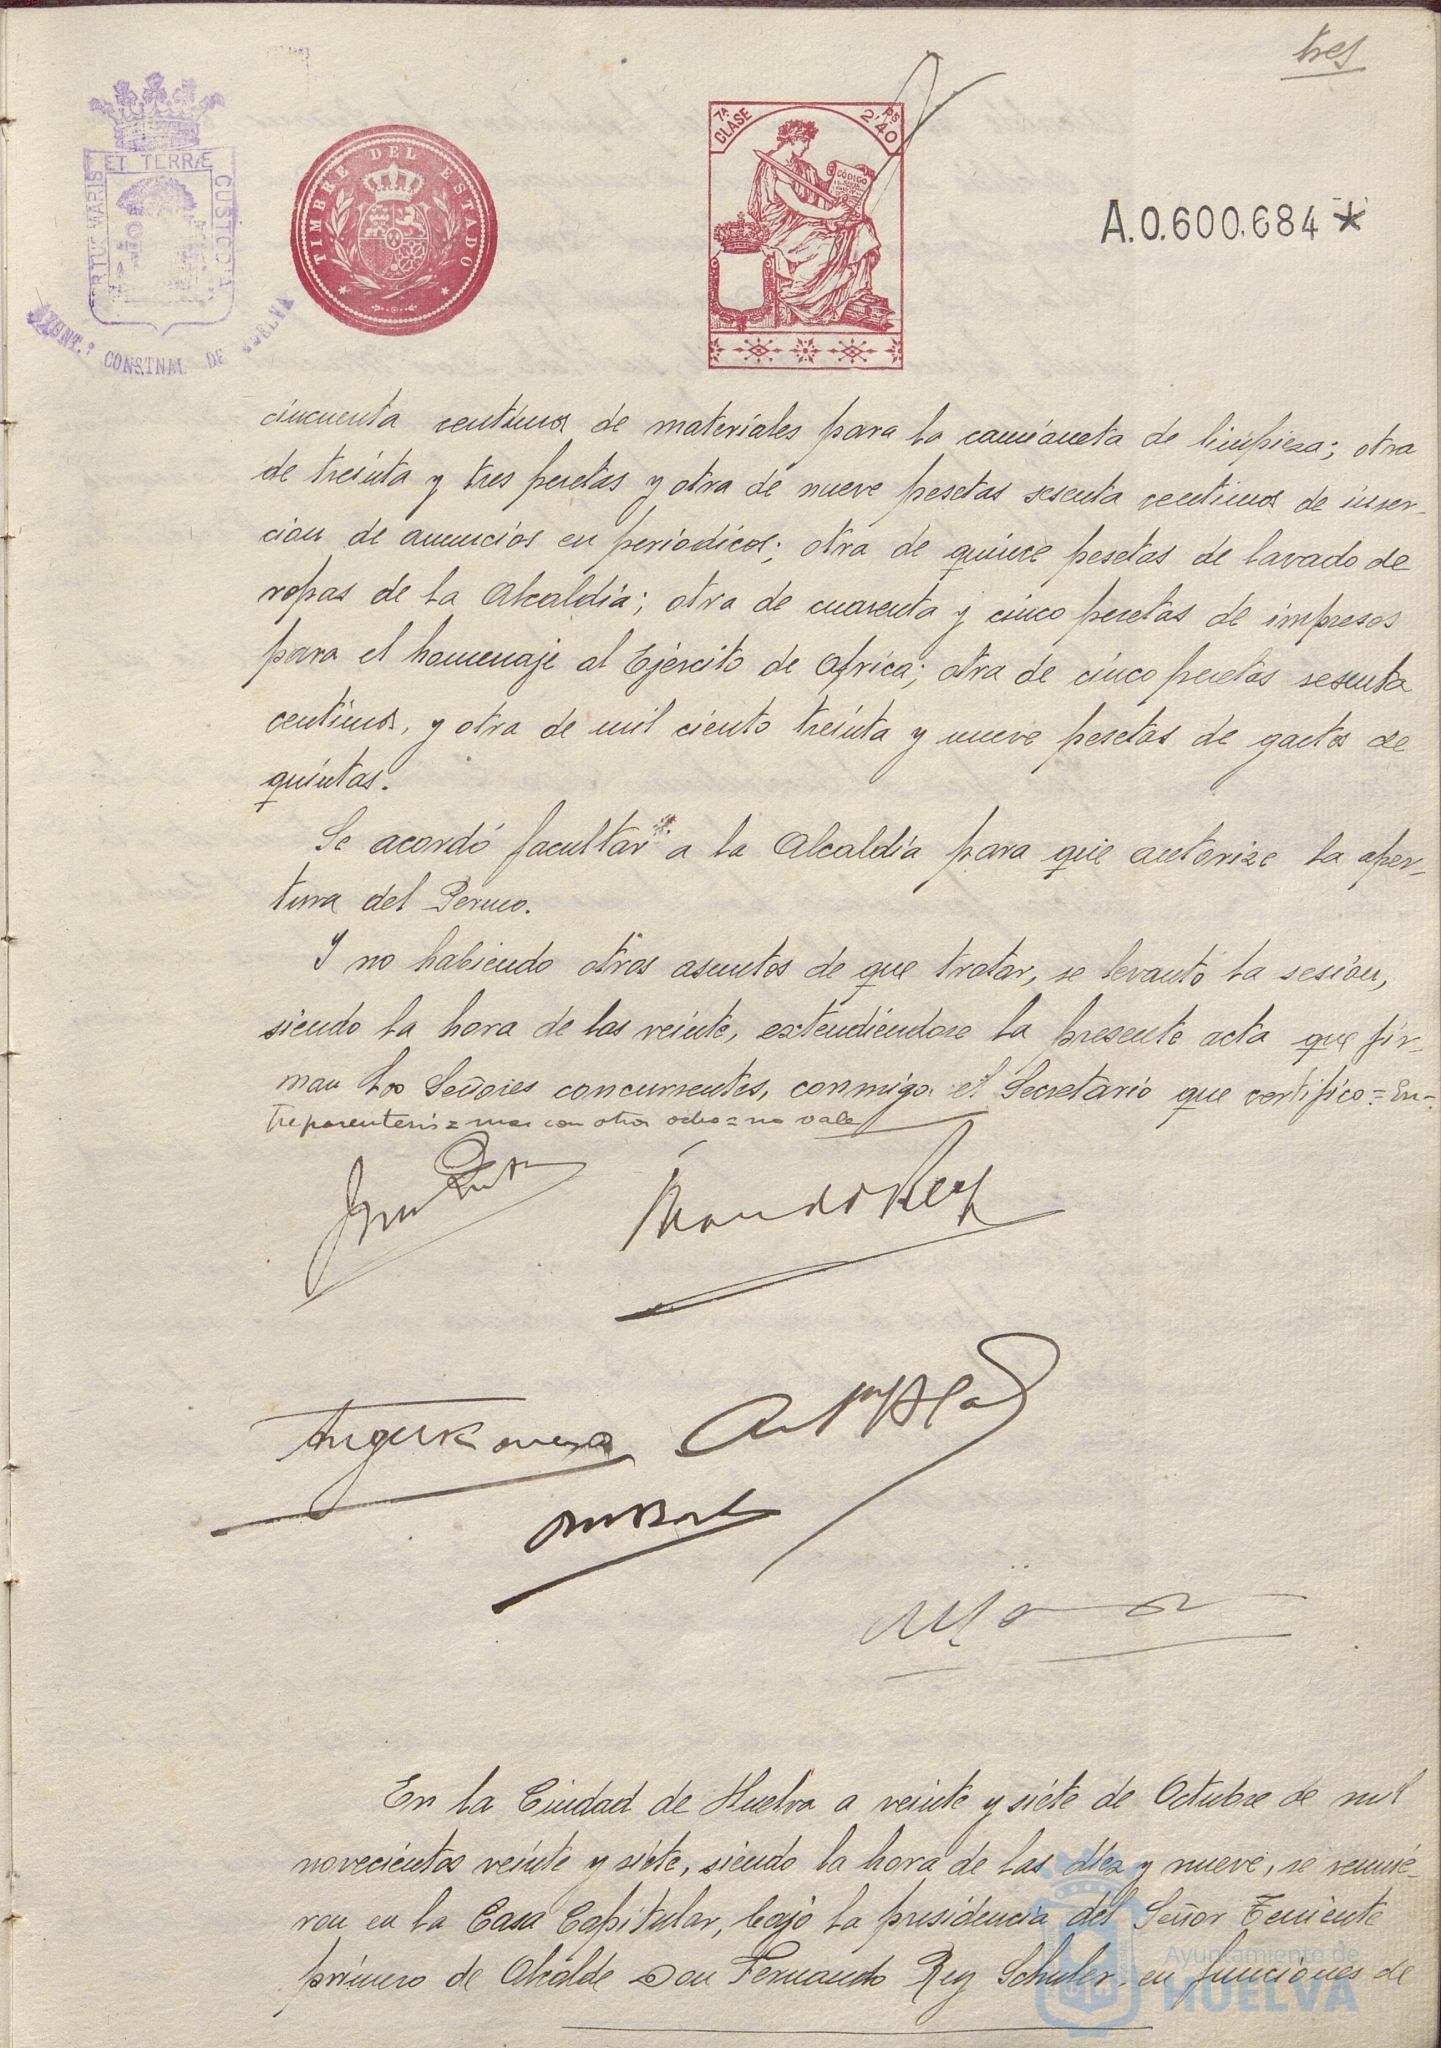 tres
PORTUS MARIS ET TERRÆ CUSTODIA
AYUNT.º CONSTNAL DE HUELVA
TIMBRE DEL ESTADO
7ª CLASE
PS 2'40
CÓDIGO
A.0.600.684*
cincuenta centimos de materiales para la camioneta de limpieza; otra
de treinta y tres pesetas y otra de nueve pesetas sesenta centimos de inser-
cion de anuncios en periodicos; otra de quince pesetas de lavado de
ropas de la Alcaldia; otra de cuarenta y cinco pesetas de impresos
para el homenaje al Ejército de Africa; otra de cinco pesetas sesenta
centimos, y otra de mil ciento treinta y nueve pesetas de gastos de
quintas.
Se acordó facultar a la Alcaldía para que autorize la aper-
tura del
Y no habiendo otros asuntos de que tratar, se levantó la sesion,
siendo la hora de las veinte, extendiéndose la presente acta que fir-
man los Señores concurrentes, conmigo el Secretario que certifico = En-
treparentesis = mas con otra ocho = no vale
En la Ciudad de Huelva a veinte y siete de Octubre de mil
novecientos veinte y siete, siendo la hora de las diez y nueve, se reunie-
ron en la Casa Capitular, bajo la presidencia del Señor Teniente
primero de Alcalde Don Fernando Rey Schuler, en funciones de
Ayuntamiento de
HUELVA